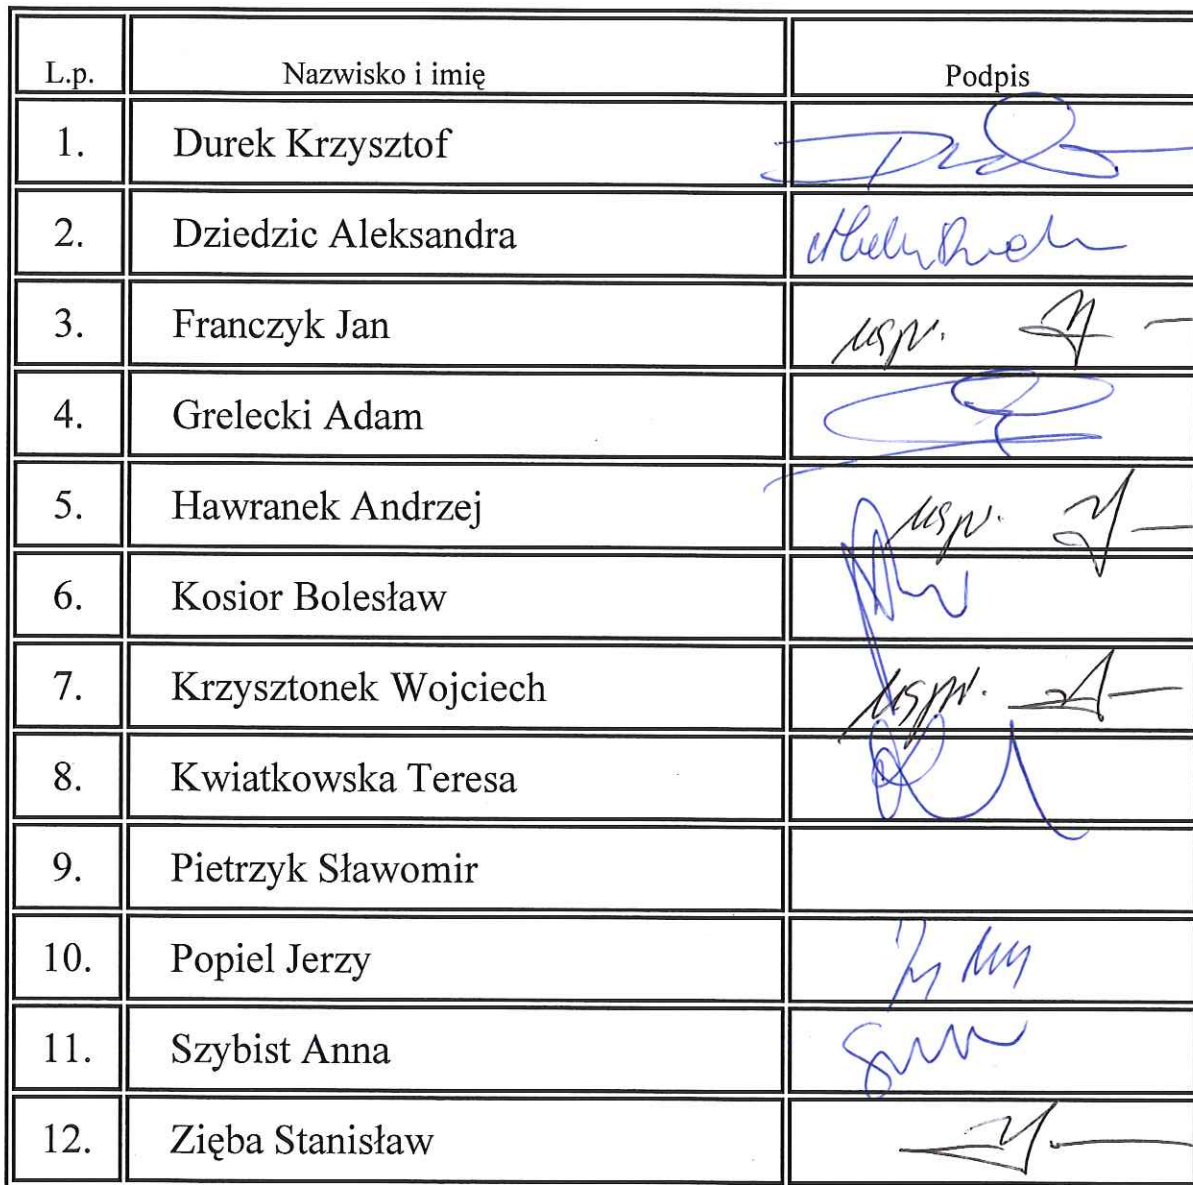 L.p. Nazwisko i imię Podpis
1. Durek Krzysztof
2. Dziedzic Aleksandra
3. Franczyk Jan uspr.
4. Grelecki Adam
5. Hawranek Andrzej uspr.
6. Kosior Bolesław
7. Krzysztonek Wojciech uspr.
8. Kwiatkowska Teresa
9. Pietrzyk Sławomir
10. Popiel Jerzy
11. Szybist Anna
12. Zięba Stanisław